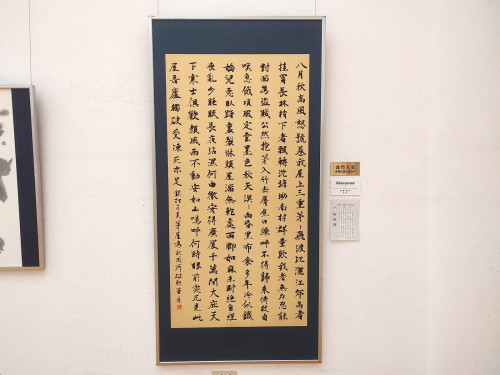 八月秋高風怒號卷我屋上三重茅〻飛渡江灑江郊高者
挂罥長林梢下者飄轉沈塘坳南村群童欺我老無力忍能
對面為盜賊公然抱茅入竹去唇焦口燥呼不得歸來倚杖自
嘆息俄頃風定雲墨色秋天漠〻向昏黑布衾多年冷似鐵
嬌兒惡臥踏裏裂牀頭屋漏無乾處雨腳如麻未斷絕自經
喪亂少睡眠長夜沾濕何由徹安得廣廈千萬間大庇天
下寒士俱歡顏風雨不動安如山嗚呼何時眼前突兀見此
屋吾廬獨破受凍死亦足 錄杜甫茅屋為秋風所破歌